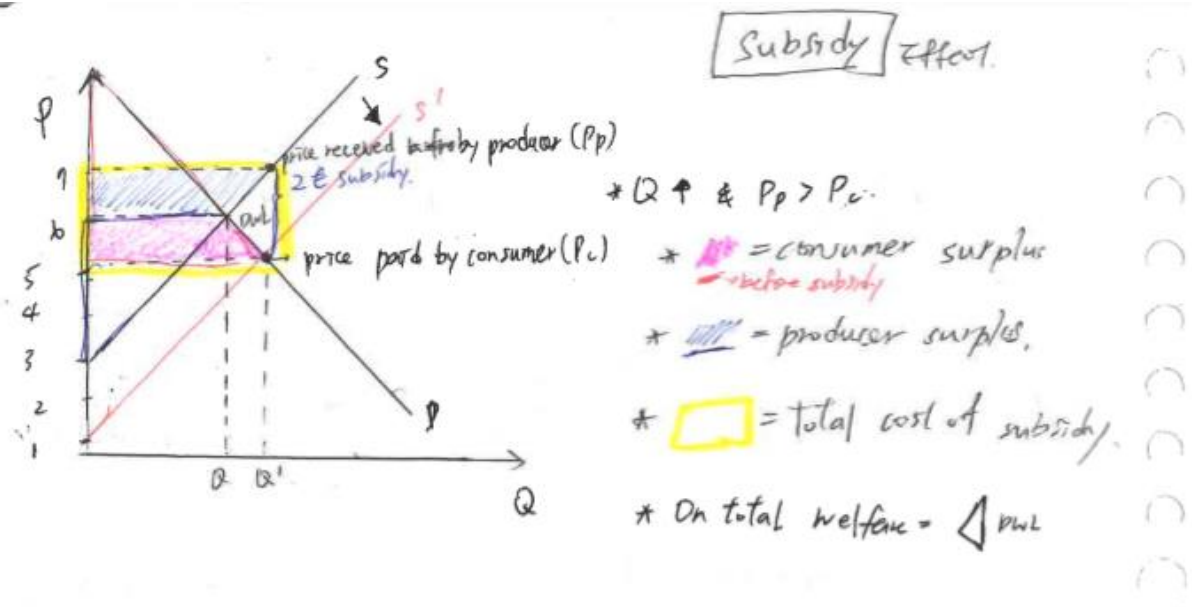 Subsidy Effect.
P
S
S'
price received by producer (Pp)
2€ subsidy.
7
6
DWL
price paid by consumer (Pc)
5
4
3
2
1
D
Q Q'
Q
* Q ↑ & Pp > Pc.
* = consumer surplus
before subsidy
* = producer surplus.
* = total cost of subsidy.
* On total welfare = DWL